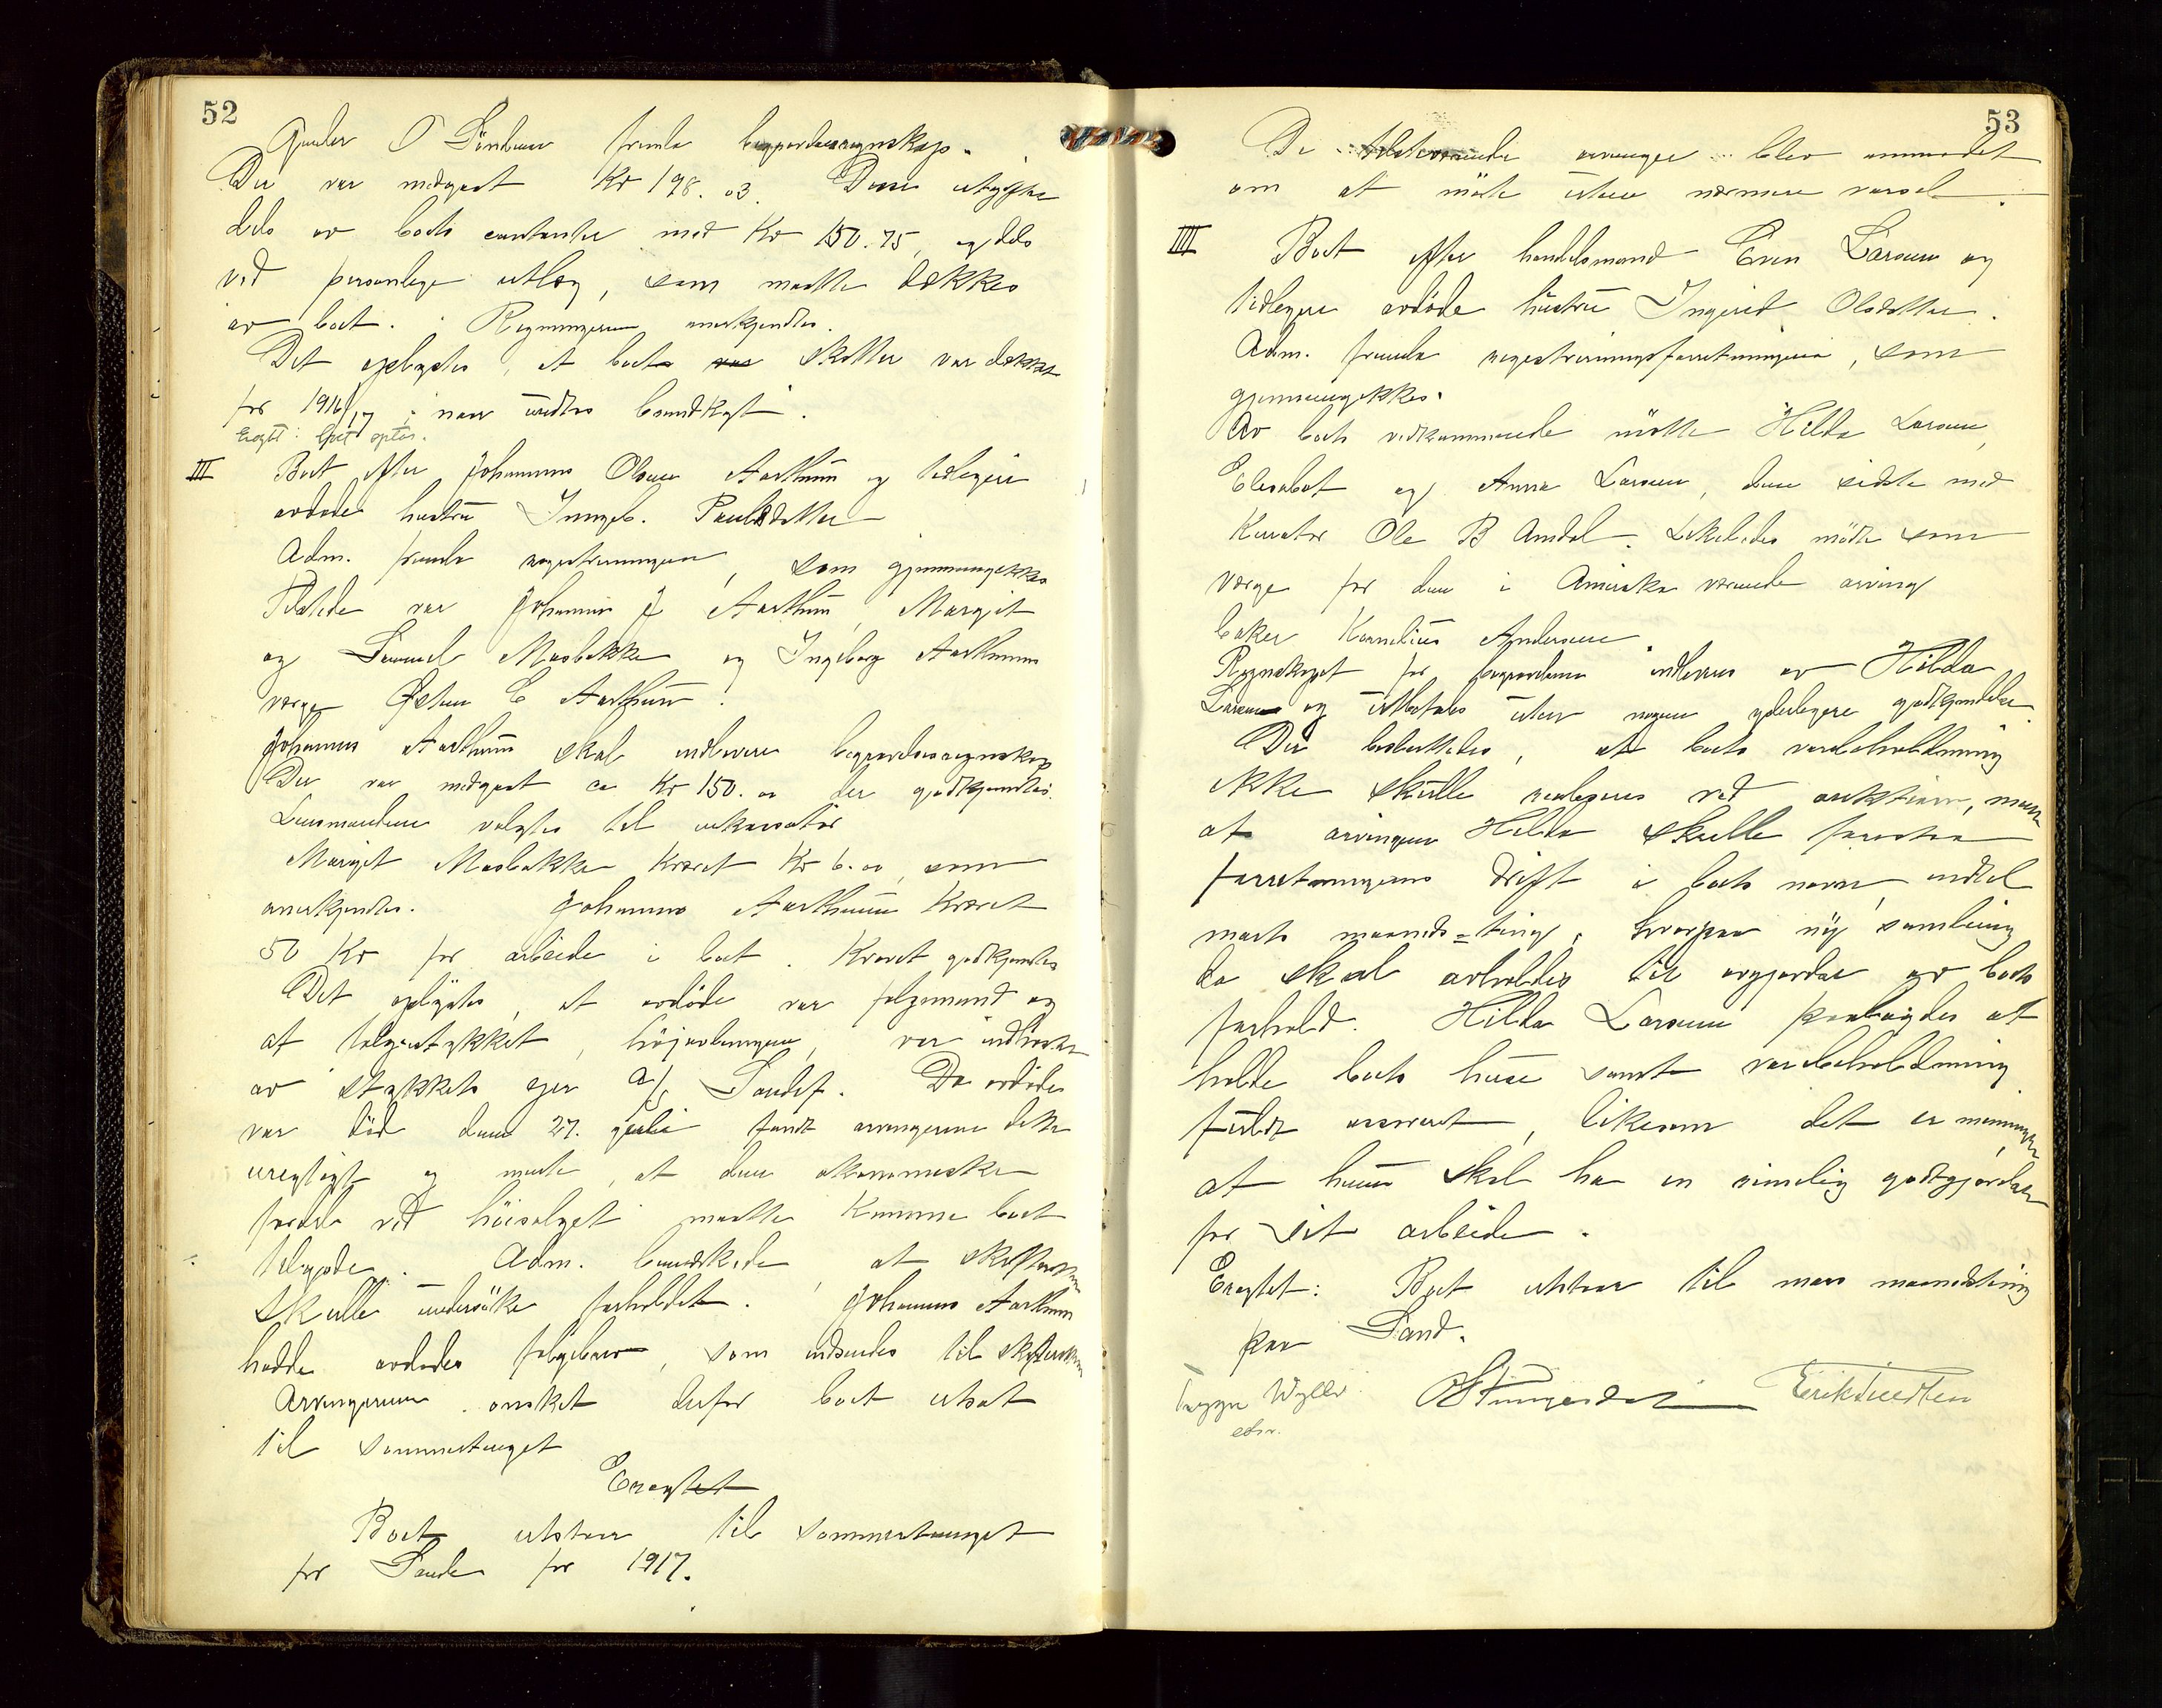 52
Gunder O fremla begravelsesregnskap.
Der var medgaat Kr 198.03. Disse utgifter
dels av boets contanter med Kr 150.75, og dels
ved personlige utlæg, som maatte dækkes
av boet. Regningerne anerkjendtes.
Det oplystes, at boets var skatter var dækket
for 1916/17 i
Eragtet: Boet optas.
III Boet efter Johannes Olsen Aarthun og tidligere
avdøde hustru Ingeb. Paulsdatter
Adm. fremla registreringen, som gjennemgikkes
Tilstede var Johannes J Aarthun, Margit
og Samuel Mosbakke og Ingeborg Aarthuns
verge Østen E Aarthun.
Johannes Aarthun skal indlevere begravelsesregnskap
Der var medgaat ca Kr 150.00 der godkjendtes.
Lensmanden valgtes til inkassator
Margit Mosbakke krævet Kr 6.00, som
anerkjendtes. Johannes Aarthun krævet
50 Kr for arbeide i boet. Kravet godkjendtes
Det oplystes, at avdøde var følgemand og
at følgestykket, høiavlingen, var indhøstet
av stykkets eier A/S Sandsf. Da avdøde
var død den 27. juli fandt arvingerne dette
uregtigt og mente, at den økonomiske
fordel ved høisalget maatte komme boet
tilgode. Adm. bemerkede, at skifteretten
skulle undersøke forholdet. Johannes Aarthun
hadde avdødes følgebrev, som indsendes til skifteretten
Arvingerne ønsket derfor boet utsat
til sommertinget
Eragtet
Boet utstaar til sommertinget
for Sande for 1917.
53
De tilstedeværende arvinger blev anmodet
om at møte uten nærmere varsel.
IIII Boet efter handelsmand Even Larsen og
tidligere avdøde hustru Ingerid Olsdatter.
Adm. fremla registreringsforretningen, som
gjennemgikkes.
Av boets vedkommende møtte Hilda Larsen,
Elesabet og Anna Larsen, den sidste med
Kurator Ole B Amdal. Likeledes møtte som
verge for den i Amerika værende arving
baker Kornelius Andersen
Regnskapet for begravelsen indleveres av Hilda
Larsen og utbetales uten nogen yderligere godkjendelse.
Det besluttedes, at boets varebeholdning
ikke skulle realiseres ved auktion, men
at arvingen Hilda skulle forestaa
forretningens drift i boets navn indtil
marts maaneds-ting, hvorpaa ny samling
da skal avholdes til avgjørelse av boets
forhold. Hilda Larsen paalagdes at
holde boets huse samt varebeholdning
fuldt assurert, likesom det er meningen
at hun skal ha en rimelig godtgjørelse
for sit arbeide.
Eragtet: Boet utstaar til mars maanedsting
paa Sand.
Trygve Wyller